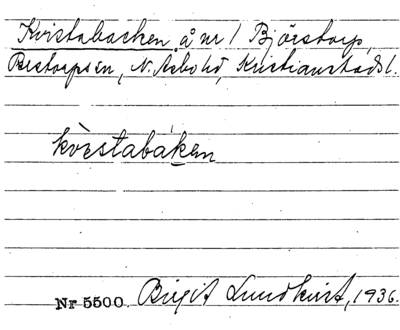 Kvistabacken å nr 1 Björstorp,
N. Åsbohd, Kristianstads l.
kvèstabáken
Nr 5500. Birgit Lundkvist, 1936.